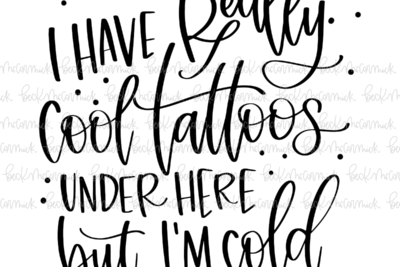 I HAVE Really
cool tattoos
UNDER HERE
but I'M cold